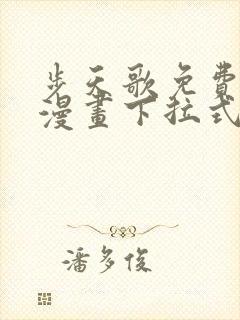 步天歌免費
漫畫下拉式
潘多俊